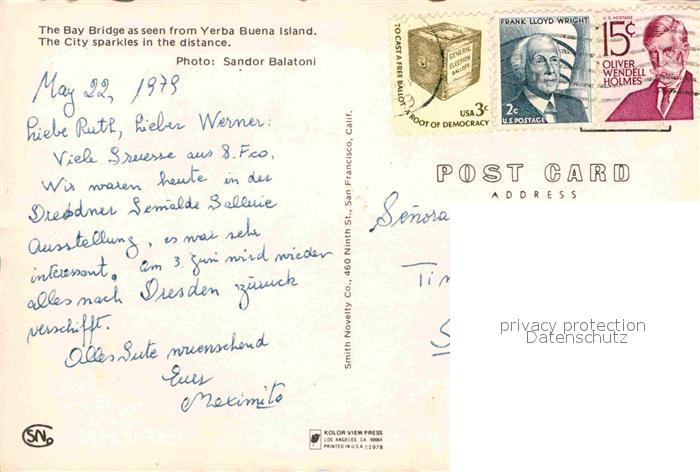 The Bay Bridge as seen from Yerba Buena Island.
The City sparkles in the distance.
Photo: Sandor Balatoni
May 22, 1979
Liebe Ruth, Lieber Werner:
Viele Gruesse aus S. Fco.
Wir waren heute in der
Dresdner Gemälde Gallerie
Ausstellung, es war sehr
interessant. Am 3. Juni wird wieder
alles nach Dresden zurück
verschifft.
Alles Gute wuenschend
Euer
Maximito
SN
Smith Novelty Co., 460 Ninth St., San Francisco, Calif.
KOLOR VIEW PRESS
LOS ANGELES, CA. 90064
PRINTED IN U.S.A. ©1978
TO CAST A FREE BALLOT A ROOT OF DEMOCRACY
GENERAL
ELECTION
BALLOTS
USA 3c
FRANK LLOYD WRIGHT
2c
U.S. POSTAGE
U.S. POSTAGE
15c
OLIVER
WENDELL
HOLMES
POST CARD
ADDRESS
Señora
Tim
S
privacy protection
Datenschutz